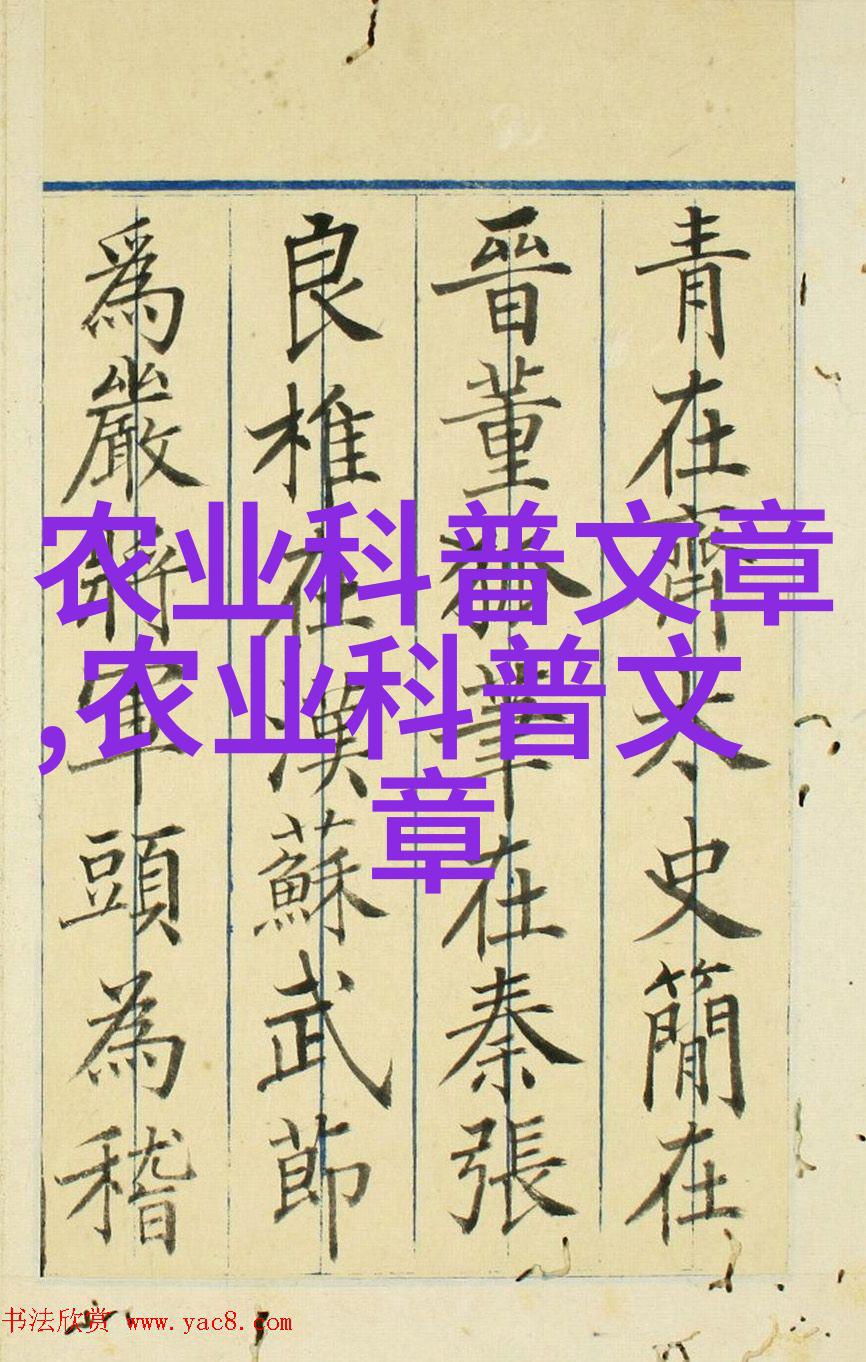 青在齊太史簡在
晉董狐筆在秦張
良椎在漢蘇武節
爲嚴將軍頭為稽
农业科普文章
,农业科普文
章
书法欣赏 www.yac8.com